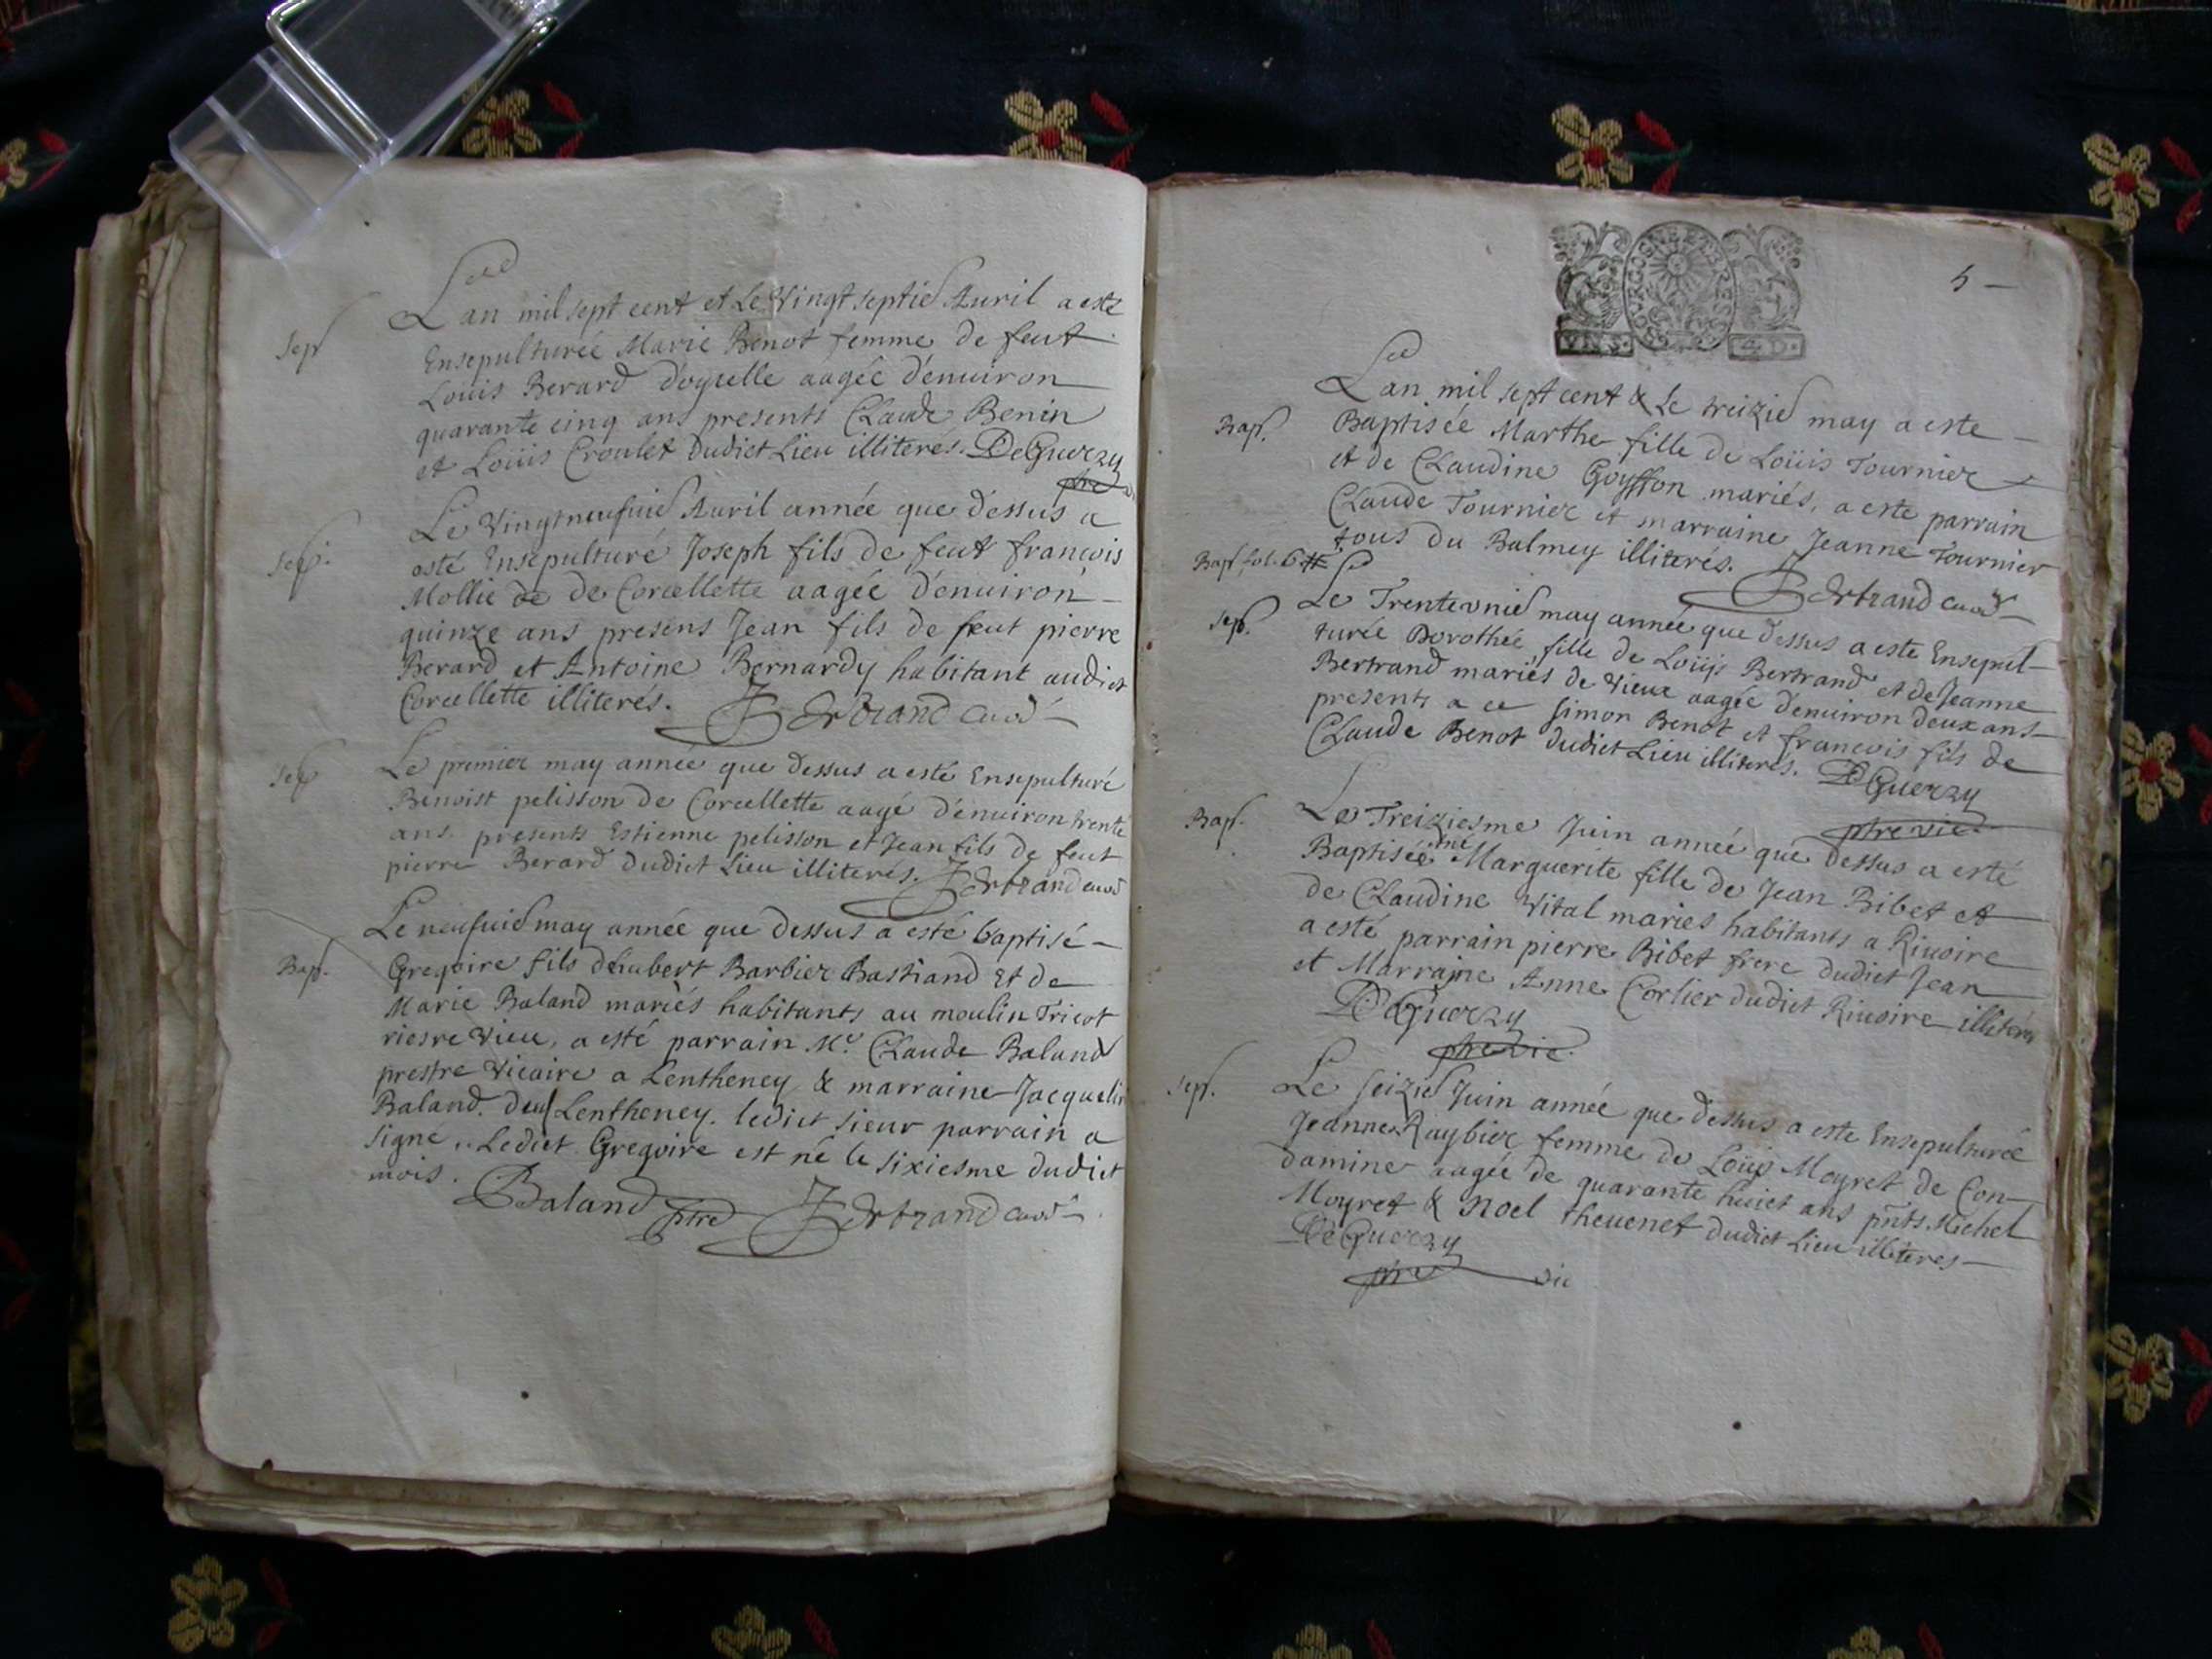 Sep
Lan mil sept cent et Le Vingt septie Auril a este
Ensepulturée Marie Benot femme de feut
Louis Berard d'oyselle aagée d'enuiron
quarante cinq ans presents Claude Benin
et Loüis Croulet dudict Lieu illiteres. DeGuerzy
ptre
Sep.
Le Vingtneufuie Auril année que dessus a
esté Ensepulturé Joseph fils de feut francois
Mollie de de Corcellette aagée d'enuiron
quinze ans presens Jean fils de feut pierre
Berard et Antoine Bernardy habitant audict
Corcellette illiterés. JBertrand curé
Sep
Le premier may année que dessus a esté Ensepulturé
Benoist pelisson de Corcellette aagé d'enuiron trente
ans. presents Estienne pelisson et Jean fils de feut
pierre Berard dudict Lieu illiterés. JBertrand curé
Bap.
Le neufuie may année que dessus a esté baptisé
Gregoire fils d'hubert Barbier Bastiand Et de
Marie Baland mariés habitants au moulin Tricot
riesre Vieu, a esté parrain Mr. Claude Baland
prestre Vicaire a Lentheney & marraine Jacqueli
Baland. Lentheney. ledict sieur parrain a
signé,. Ledict Gregoire est né le sixiesme dudict
mois.
Baland ptre JBertrand curé
5
BOURGOSNE ET BRESSE
VN S. 4. D.
Bap.
Lan mil sept cent & Le treizie may a este
Baptisée Marthe fille de Loüis Tournier
et de Claudine Goyffon mariés, a este parrain
Claude Tournier et marraine Jeanne Tournier
tous du Balmey illiterés.
Bap fol. 6 #
JBertrand curé
Sep.
Le Trentevnie may année que dessus a este Ensepul
turée Dorothée, fille de Loüys Bertrand et de Jeanne
Bertrand mariés de Vieux aagée d'enuiron deux ans
presents a ce Simon Benot et francois fils de
Claude Benot dudict Lieu illiterés. DeGuerzy
ptre vic.
Bap.
Le Treiziesme Juin année que dessus a esté
Baptisée Marguerite fille de Jean Bibet et
de Claudine Vital mariés habitants a Riuoire
a esté parrain pierre Bibet frere dudict Jean
et Marraine Anne Corlier dudict Riuoire illiterés
DeGuerzy
ptre vic.
Sep.
Le seizie Juin année que dessus a este Ensepulturée
Jeanne Raybier femme de Loüys Moyret de Con
damine aagée de quarante huict ans pnts Michel
Moyret & Noel theuenet dudict Lieu illiteres
DeGuerzy
ptre vic